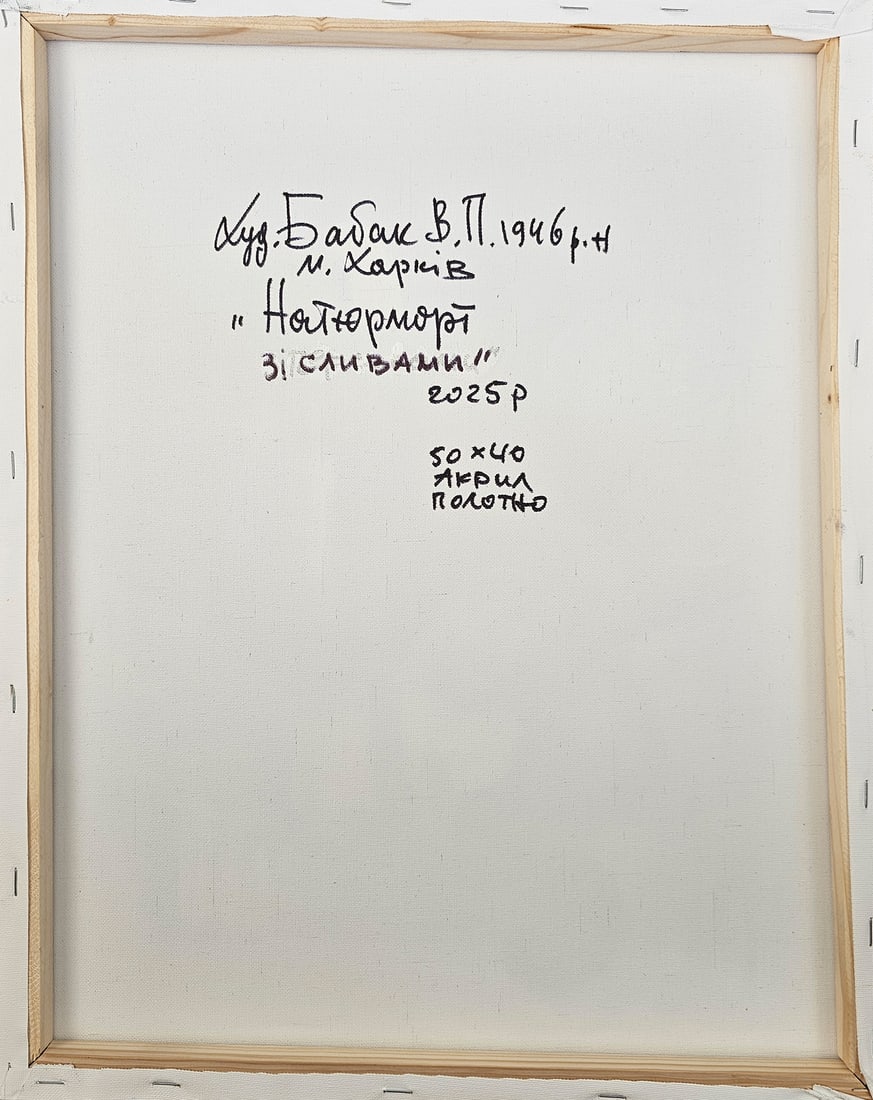 Худ. Бабак В.П. 1946 р.н
м. Харків
"Натюрморт
зі сливами"
2025р
50×40
АКРИЛ
ПОЛОТНО